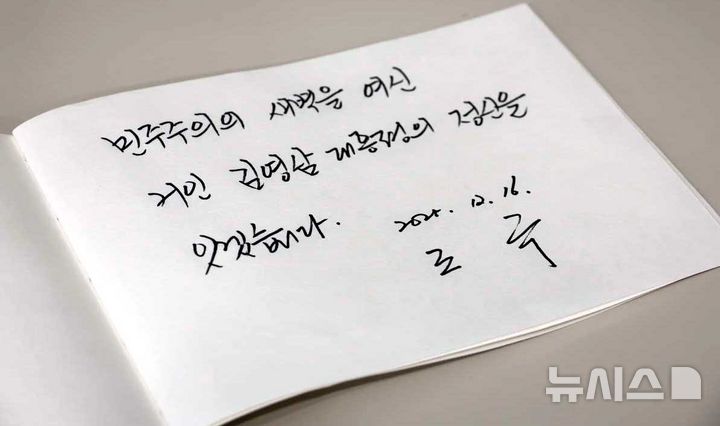 민주주의의 새벽을 여신
거인 김영삼 대통령의 정신을
잇겠습니다.
12. 16.
뉴시스